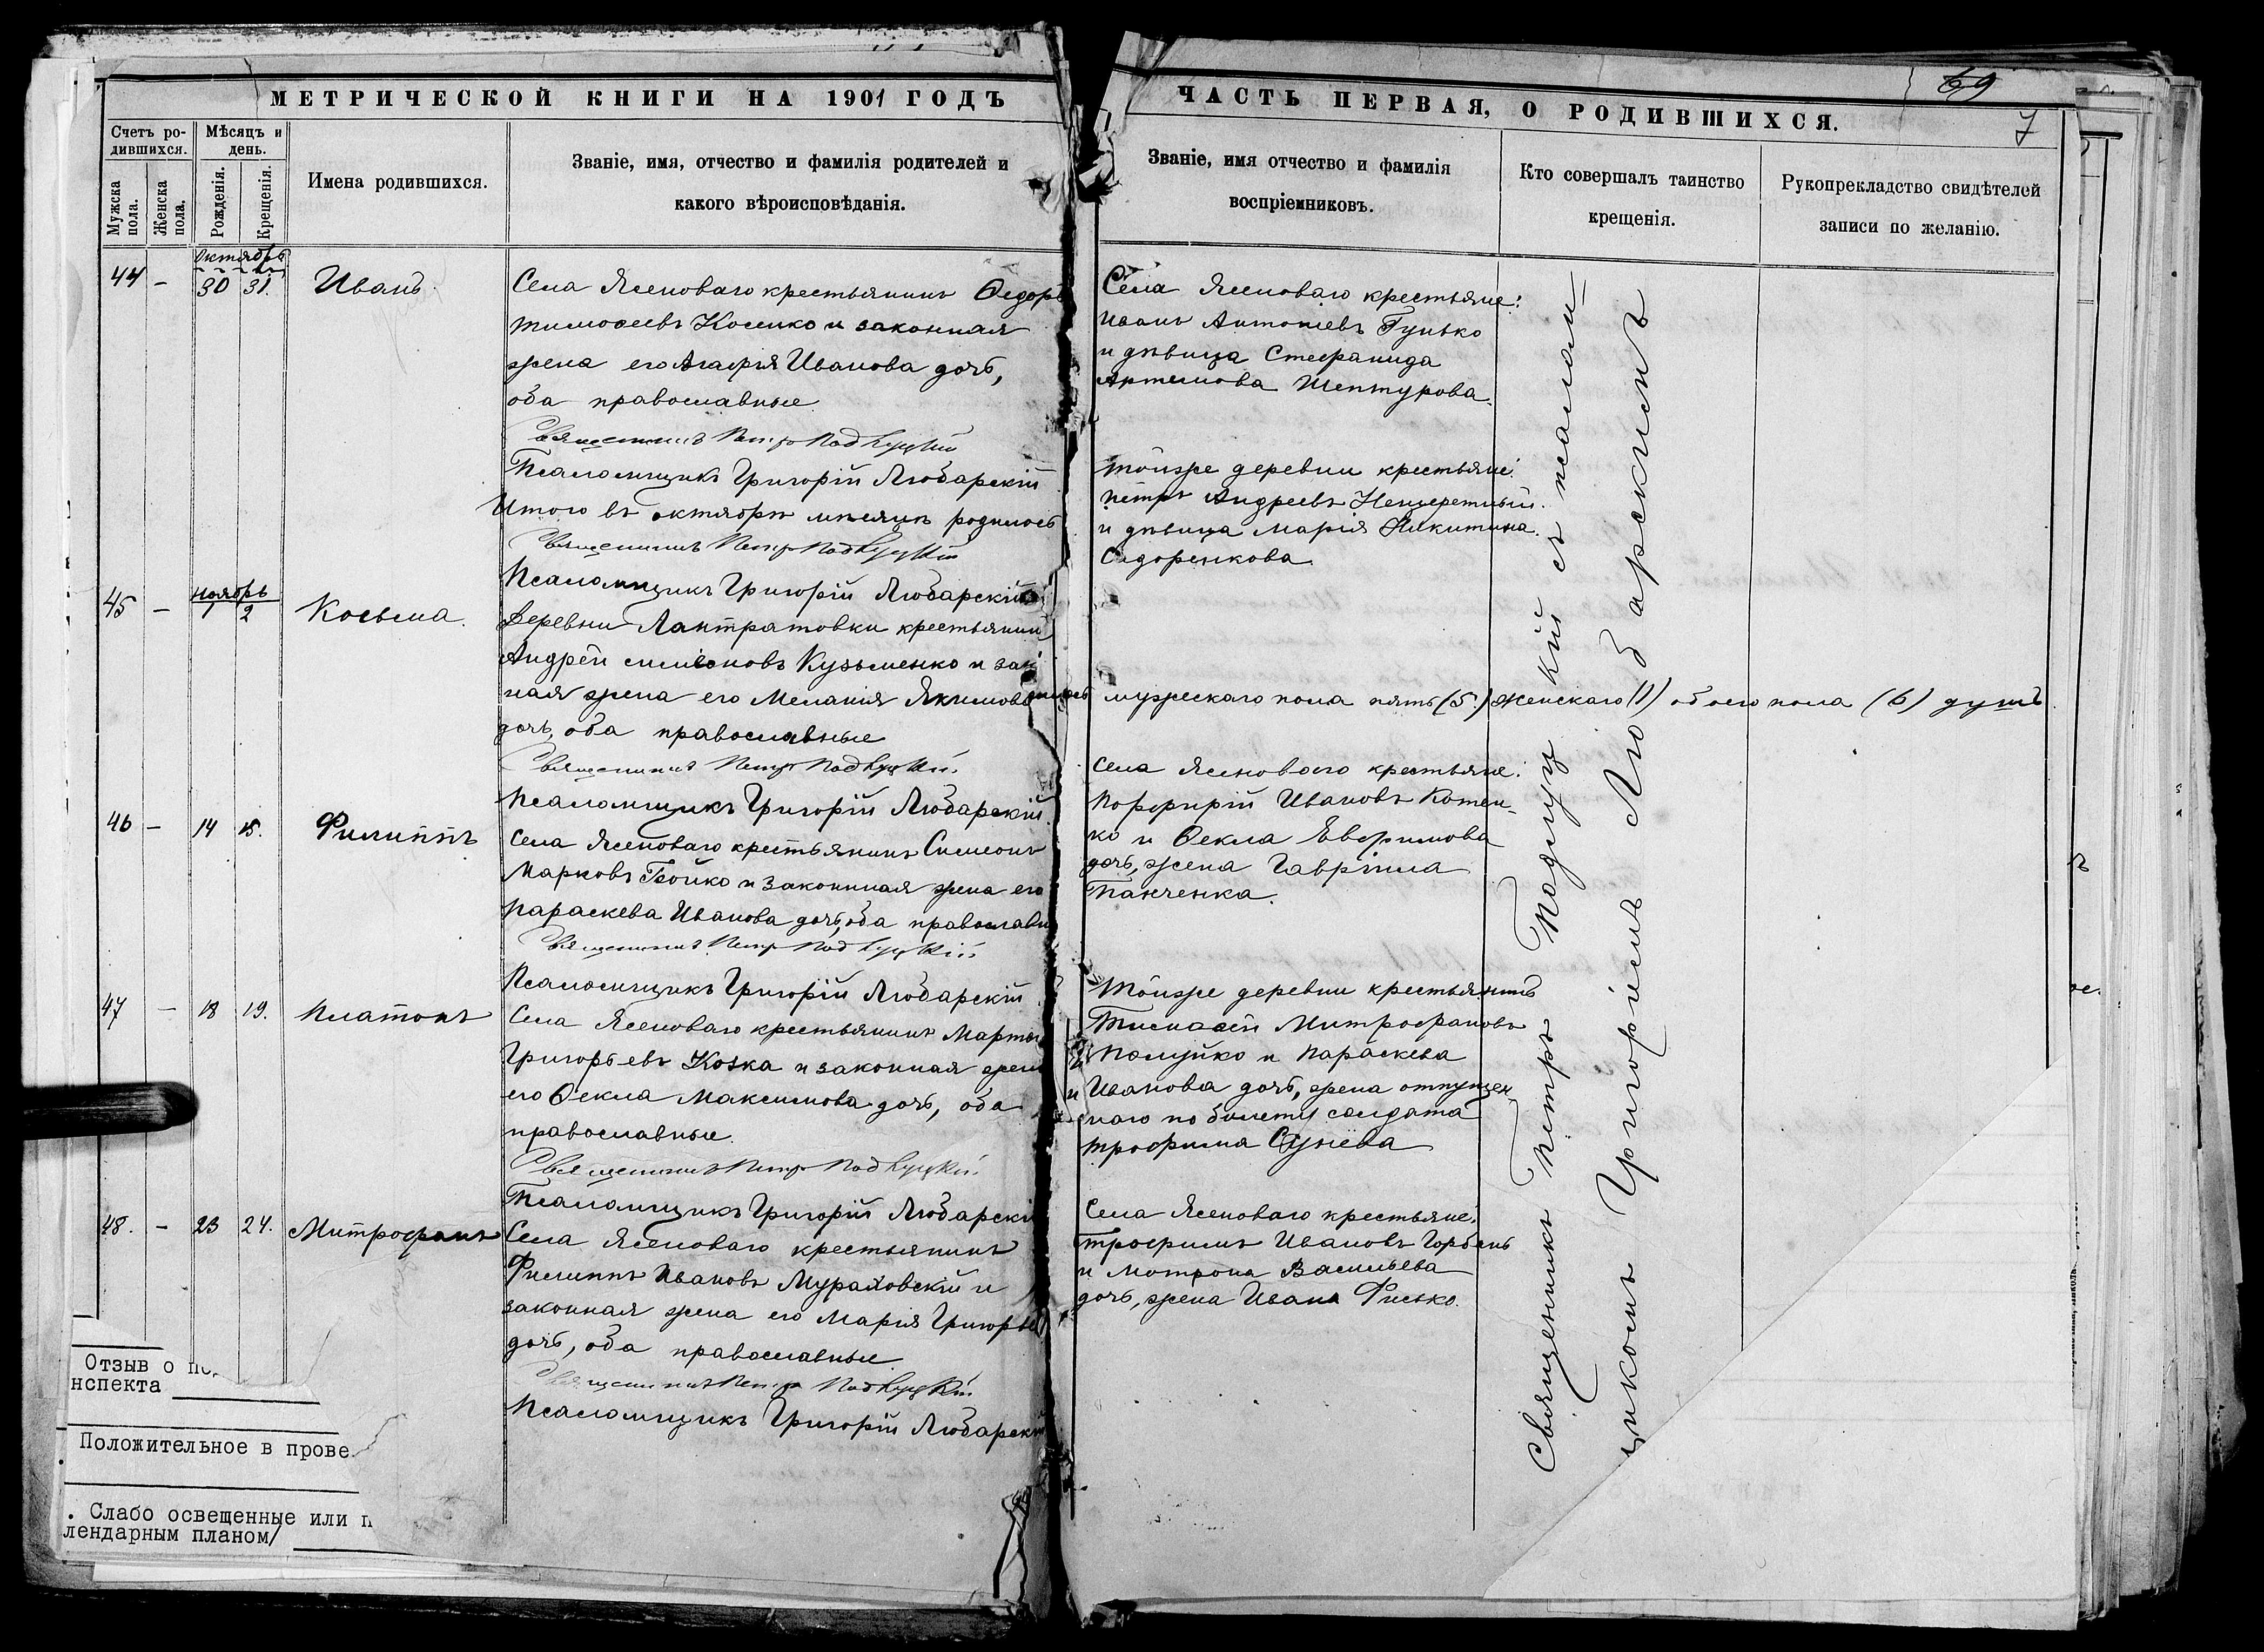 МЕТРИЧЕСКОЙ КНИГИ НА 1901 ГОДЪ
Счетъ ро-
дившихся.
Мѣсяцъ и
день.
Мужска
пола.
Женска
пола.
Рожденія.
Крещенія.
Имена родившихся.
Званіе, имя, отчество и фамилія родителей и
какого вѣроисповѣданія.
Октябрь
44 - 30 31. Иванъ.
Села Ясеноваго крестьянинъ Ѳедоръ
Тимоѳеевъ Косенко и законная
жена его Агафія Иванова дочь,
оба православные.
Священникъ Петръ Подлуцкій
Псаломщикъ Григорій Любарскій
Итого въ октябрѣ мѣсяцѣ родилось
Священникъ Петръ Подлуцкій
Псаломщикъ Григорій Любарскій
Ноябрь
45 - 1 2 Косьма.
Деревни Лантратовки крестьянинъ
Андрей Симеоновъ Кузьменко и зак
ная жена его Меланія Якимова
дочь, оба православные
Священникъ Петръ Подлуцкій.
Псаломщикъ Григорій Любарскій.
46 - 14 15. Филиппъ
Села Ясеноваго крестьянинъ Симеонъ
Марковъ Бойко и законная жена его
Параскева Иванова дочь, оба православн
Священникъ Петръ Подлуцкій
Псаломщикъ Григорій Любарскій
47 - 18 19. Платонъ
Села Ясеноваго крестьянинъ Марты
Григорьевъ Козка и законная жена
его Ѳекла Максимова дочь, оба
православные.
Священникъ Петръ Подлуцкій.
Псаломщикъ Григорій Любарскі
48. - 23 24. Митрофанъ
Села Ясеноваго крестьянинъ
Филиппъ Ивановъ Мураховскій и
законная жена его Марія Григорьев
дочь, оба православные.
Священникъ Петръ Подлуцкій
Псаломщикъ Григорій Любарскі
Отзыв о по
нспекта
Положительное в прове
. Слабо освещенные или п
лендарным планом/
69
7
ЧАСТЬ ПЕРВАЯ, О РОДИВШИХСЯ.
Званіе, имя отчество и фамилія
воспріемниковъ.
Кто совершалъ таинство
крещенія.
Рукоприкладство свидѣтелей
записи по желанію.
Села Ясеноваго крестьяне:
Иванъ Антоніевъ Гунько
и дѣвица Стефанида
Артемова Шептурова.
Тойже деревни крестьяне:
Петръ Андреевъ Нещеретный
и дѣвица Марія Никитина
Сидоренкова
мужескаго пола пять (5.) женскаго (1) обоего пола (6) душъ
Села Ясеноваго крестьяне:
Порфирій Ивановъ Котен-
ко и Ѳекла Евфимова
дочь, жена Гавріила
Панченка.
Тойже деревни крестьянинъ
Тимоѳей Митрофановъ
Полуйко и Параскева
Иванова дочь, жена отпущен
наго по билету солдата
Трофима Сунева
Села Ясеноваго крестьяне:
Трофимъ Ивановъ Горбань
и Мотрона Васильева
дочь, жена Ивана Фисько.
Священникъ Петръ Подлуцкій съ псалом-
щикомъ Григоріемъ Любарскимъ